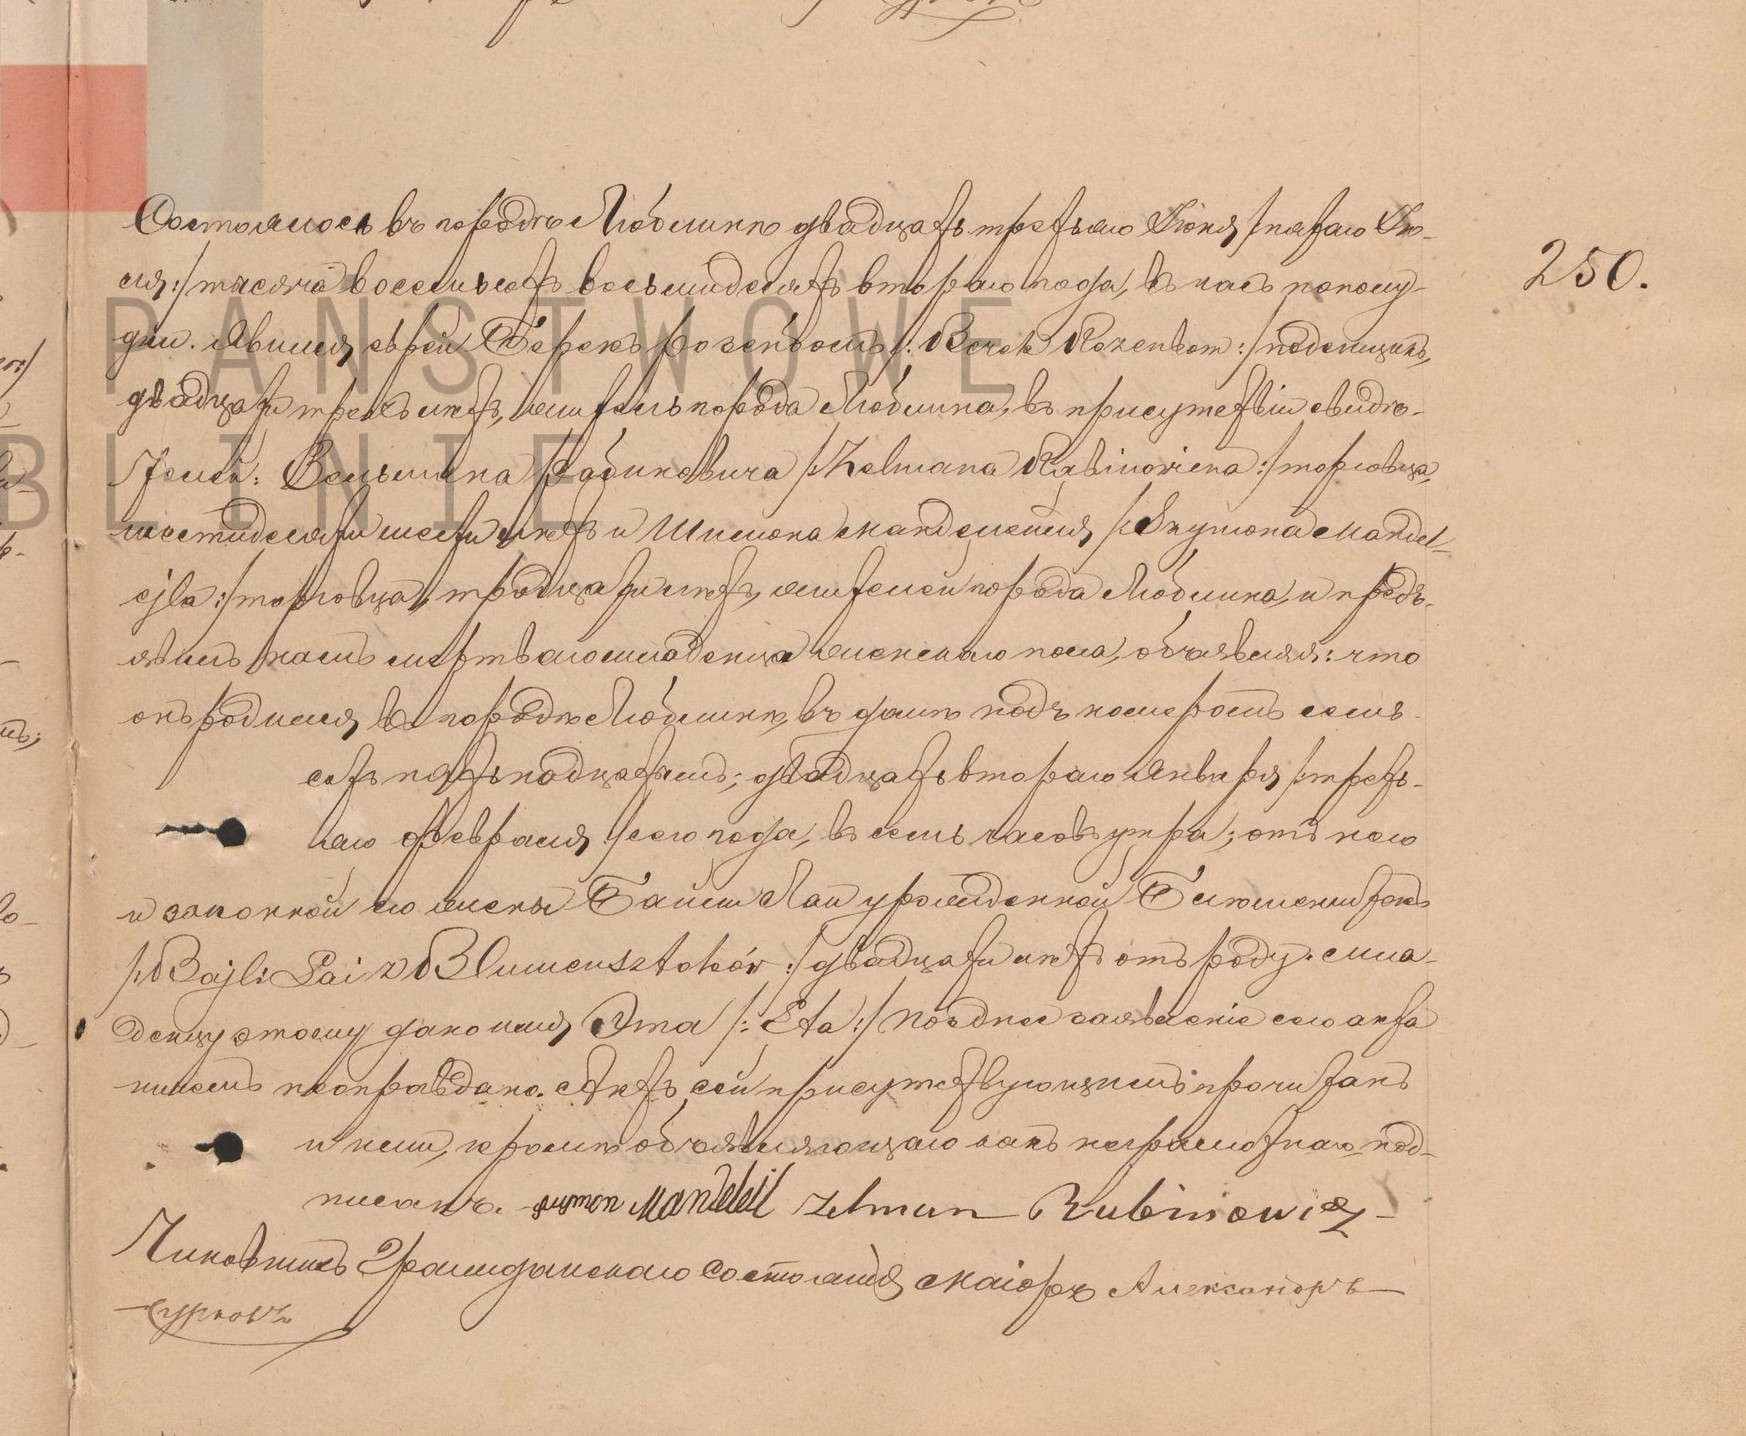 250.
Состоялось въ городѣ Люблинѣ двадцать третьяго Іюня /: пятаго Ію-
ля :/ тысяча восемьсотъ восемьдесятъ втораго года, въ часъ пополу-
дни. Явился еврей Берекъ Розенбомъ /: Berek Rozenbom :/ поденщикъ,
двадцати трехъ лѣтъ, житель города Люблина, въ присутствіи свидѣ-
телей: Зельмана Рабиновича /: Zelmana Rabinowicza :/ торговца,
шестидесяти шести лѣтъ и Шимона Мандельейля /: Szymona Mandel-
ejla :/ торговца, тридцати лѣтъ, жителей города Люблина, и предъ-
явилъ намъ мертваго младенца женскаго пола, объявляя: что
онъ родился въ городѣ Люблинѣ, въ домѣ подъ номеромъ семь-
сотъ пятьнадцатымъ; двадцать втораго Января /: треть-
яго Февраля :/ сего года, въ семь часовъ утра; отъ него
и законной его жены Байли Лаи урожденной Блюменштокъ
/: Bajli Łai z Blumensztoków :/ двадцати лѣтъ отъ роду. Мла-
денцу этому дано имя Эта /: Eta :/ Позднее заявленіе сего акта
ничемъ неоправдано. Актъ сей присутствующимъ прочитанъ
и ими, кромѣ объявляющаго какъ неграмотнаго под-
писанъ. Szymon Mandeleil Zelman Rubinowicz
Чиновникъ Гражданскаго Состоянія Маіоръ Александръ